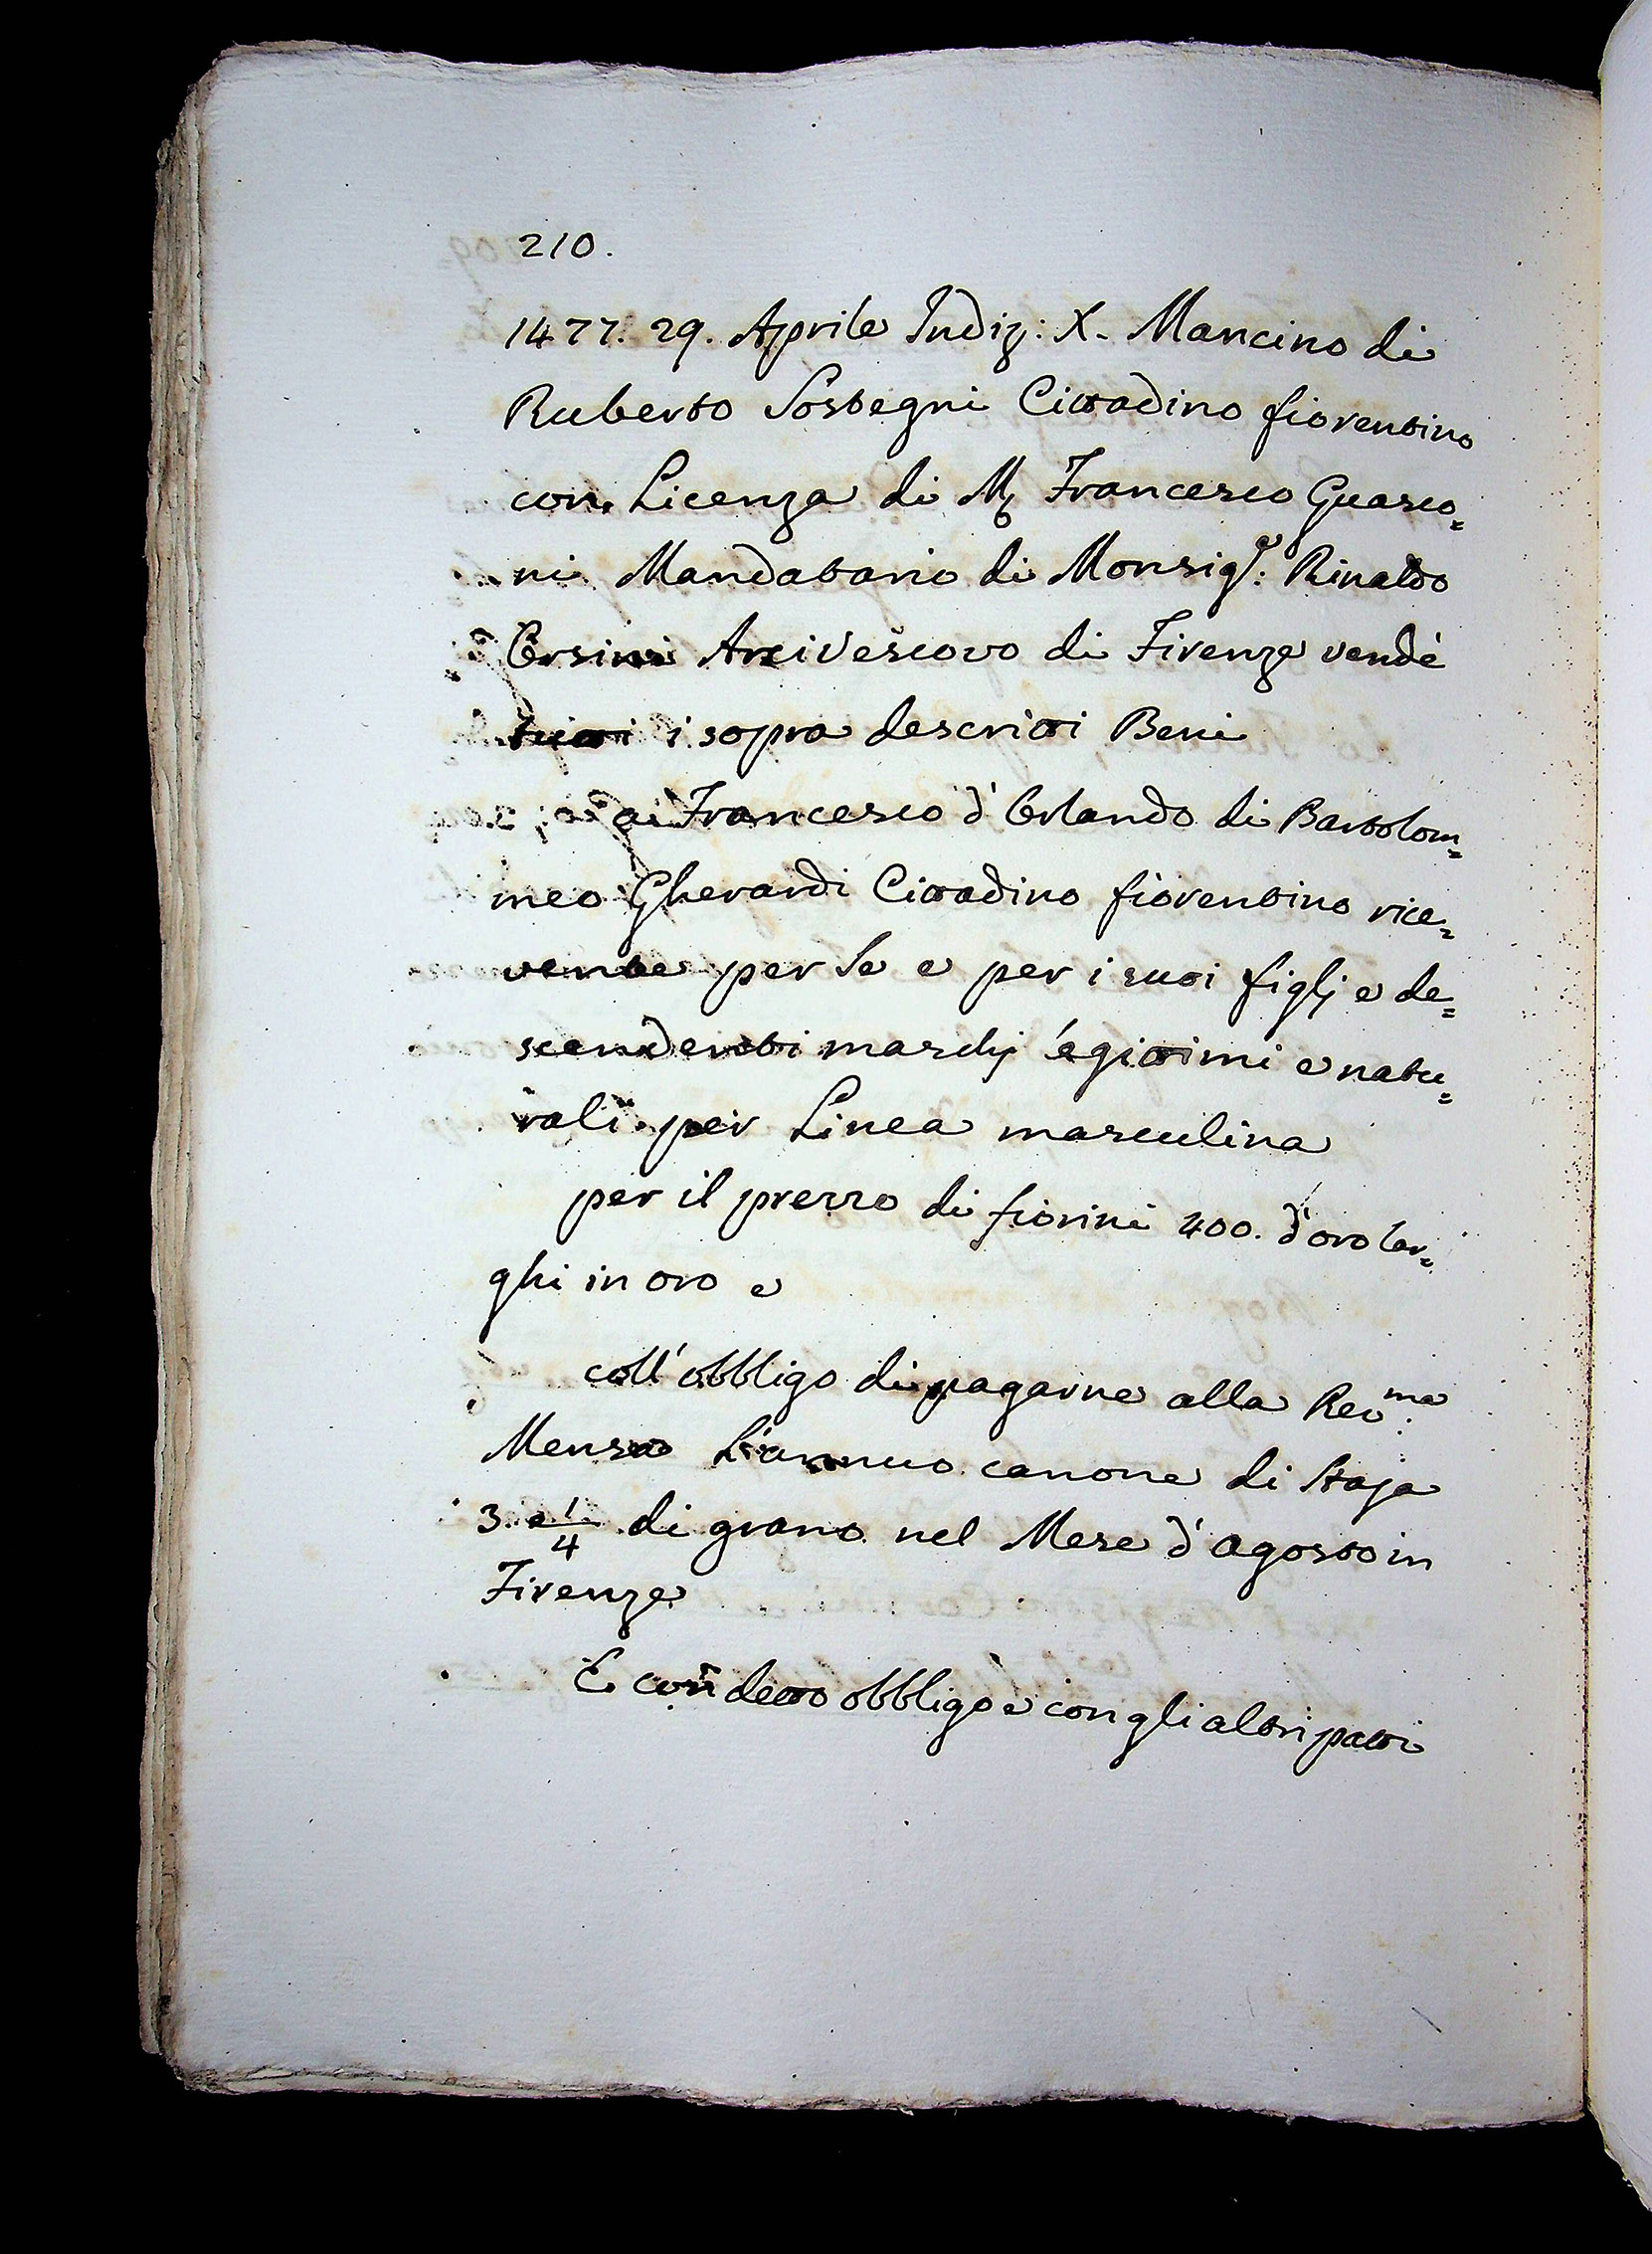 210.
1477. 29. Aprile Indiz: X. Mancino di
Ruberto Sostegni Cittadino fiorentino
con Licenza di M. Francesco Guasco=
ni Mandatario di Monsig.r: Rinaldo
Orsini Arcivescovo di Firenze vendè
tutti i sopra descritti Beni
a Francesco d'Orlando di Bartolom=
meo Gherardi Cittadino fiorentino rice=
vente per Se e per i suoi figlj e de=
scendenti maschj legittimi e natu=
rali per Linea masculina
per il prezzo di fiorini 400. d'oro lar=
ghi in oro e
coll'obbligo di pagarne alla Rev.ma
Mensa L'annuo canone di Staja
3. e 1/4 di grano nel Mese d'agosto in
Firenze
E con detto obbligo e con gli altri patti